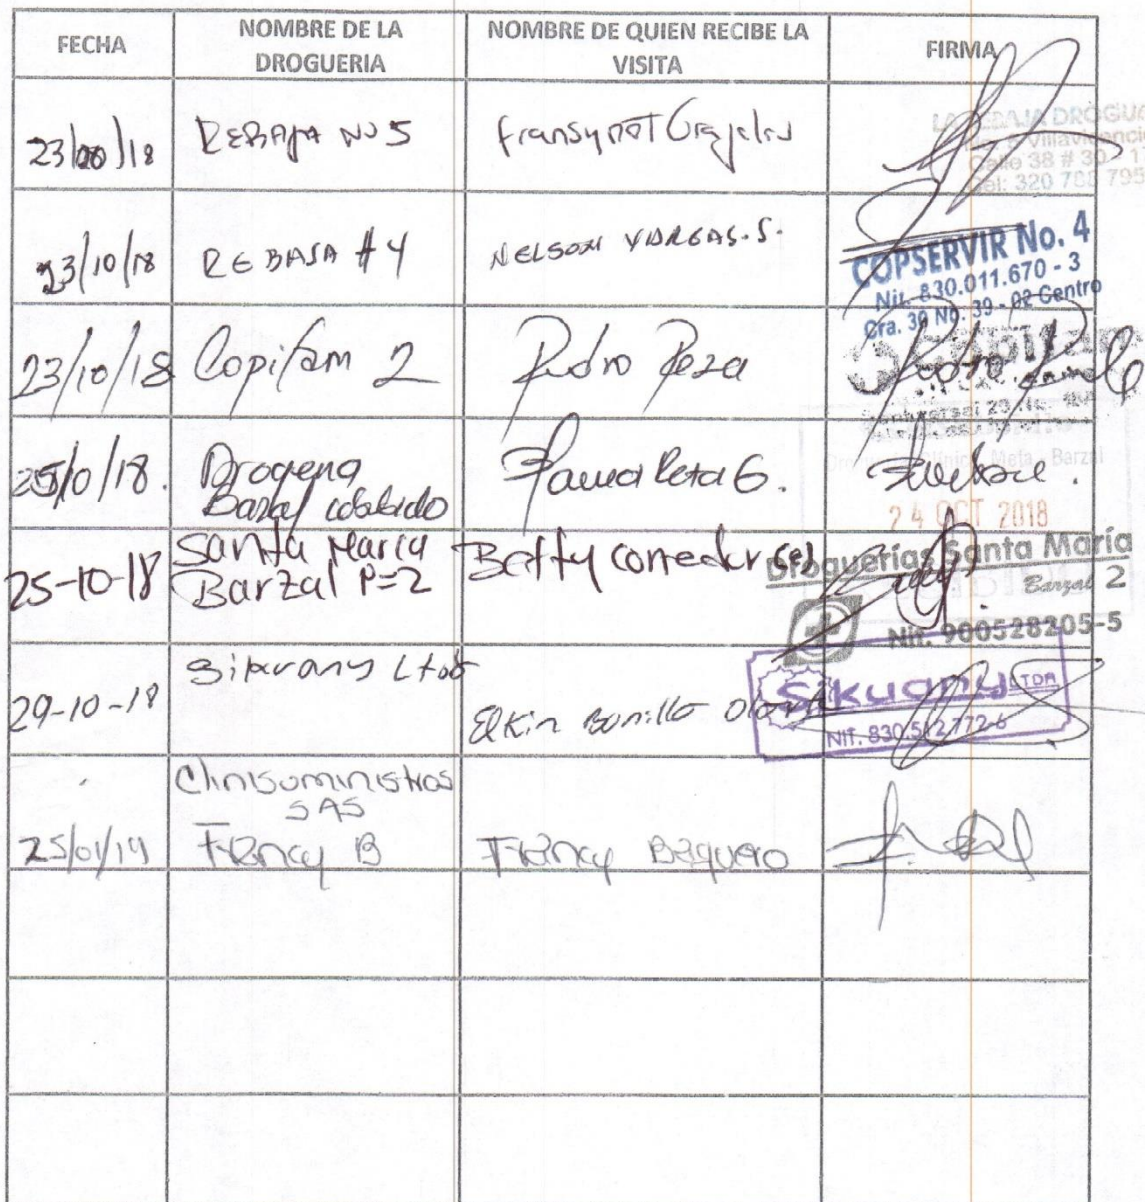 FECHA
NOMBRE DE LA DROGUERIA
NOMBRE DE QUIEN RECIBE LA VISITA
FIRMA
23/10/18
REBAJA NO 5
LA REBAJA DROGUE
No. 5 Villavicencio
Calle 38 # 30
Cel: 320 783 795
23/10/18
REBAJA #4
NELSON VARGAS.S.
COPSERVIR No. 4
Nit. 830.011.670 - 3
Cra. 30 No. 39 - 02 Centro
23/10/18
Copifam 2
Pedro Peza
/10/18.
Drogeria
Meta - Barzal
24 OCT 2018
25-10-18
Santa Maria
Barzal P=2
Betty corredor
Droguerías Santa María
Barzal 2
Nit. 900528205-5
29-10-18
Ltda
Elkin Bonilla
Sikuany LTDA
NIT. 830.512.772-6
Clinisuministros
SAS
25/01/19
Francy B
Francy Baquero